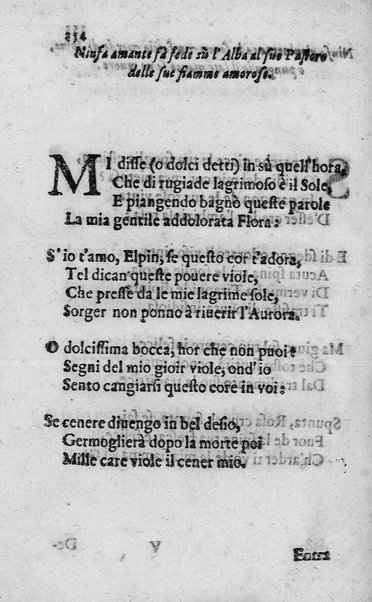 154
Ninfa amante fà fede sù l'Alba al suo Pastore
delle sue fiamme amorose.
MI disse (o dolci detti) in sù quell'hora,
Che di rugiade lagrimoso è il Sole,
E piangendo bagnò queste parole
La mia gentile addolorata Flora:
S'io t'amo, Elpin, se questo cor t'adora,
Tel dican queste pouere viole,
Che presse da le mie lagrime sole,
Sorger non ponno à riuerir l'Aurora.
O dolcissima bocca, hor che non puoi?
Segni del mio gioir viole, ond'io
Sento cangiarsi questo core in voi:
Se cenere diuengo in bel desio,
Germoglierà dopo la morte poi
Mille care viole il cener mio.
Entra